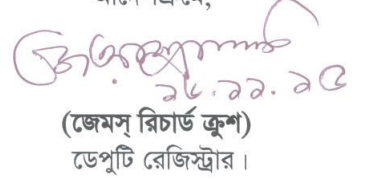 ২৮.১১.১৫
(জেমস্ রিচার্ড ক্রুশ)
ডেপুটি রেজিস্ট্রার।